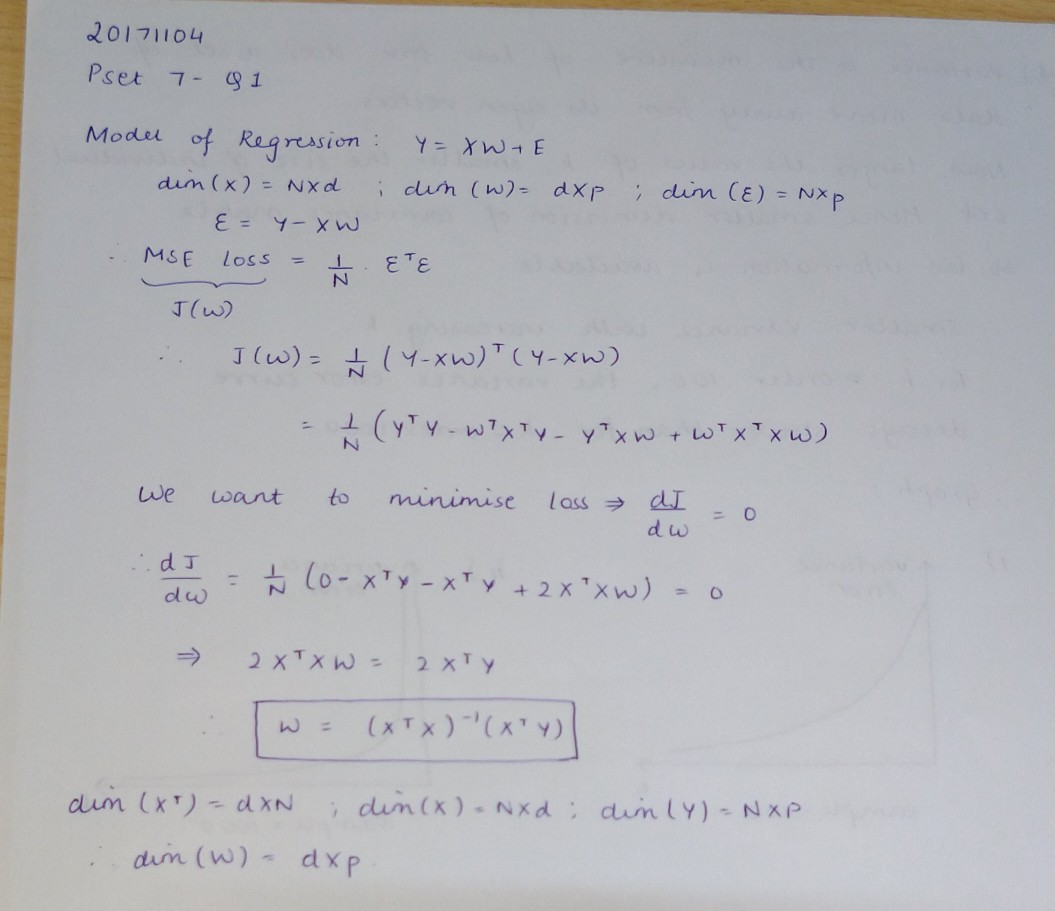 20171104
Pset 7- Q1
Model of Regression: Y = XW + E
dim(X) = N×d ; dim (W) = d×p ; dim (ε) = N×p
ε = Y - XW
∴ MSE loss = 1/N . εᵀε
J(W)
∴ J(W) = 1/N (Y-XW)ᵀ(Y-XW)
= 1/N (YᵀY - WᵀXᵀY - YᵀXW + WᵀXᵀXW)
We want to minimise loss ⇒ dJ/dW = 0
∴ dJ/dW = 1/N (0 - XᵀY - XᵀY + 2XᵀXW) = 0
⇒ 2XᵀXW = 2XᵀY
∴ W = (XᵀX)⁻¹(XᵀY)
dim (Xᵀ) = d×N ; dim(X) = N×d ; dim(Y) = N×P
∴ dim (W) = d×p